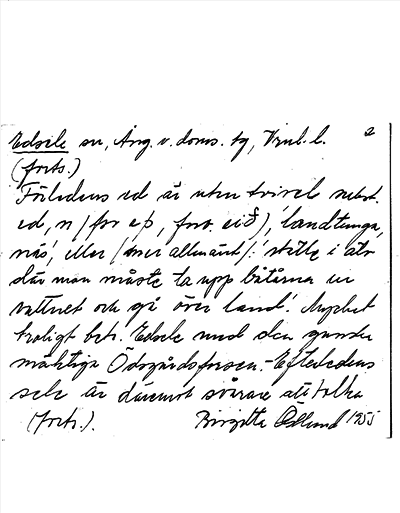 Edsele sn, Ång. v. doms. tg, Vnl. l. 2
(forts.)
Förledens ed är utan tvivel subst.
ed, n / for eþ, fsv. eið), 'landtunga,
näs', eller (mer allmänt): 'ställe i älv
där man måste ta upp båtarna ur
vattnet och gå över land'. Mycket
troligt bet. Edsele med den ganska
mäktiga Ödsgårdsforsen. - Efterledens
sele är däremot svårare att tolka
(forts.). Birgitta Edlund 1955